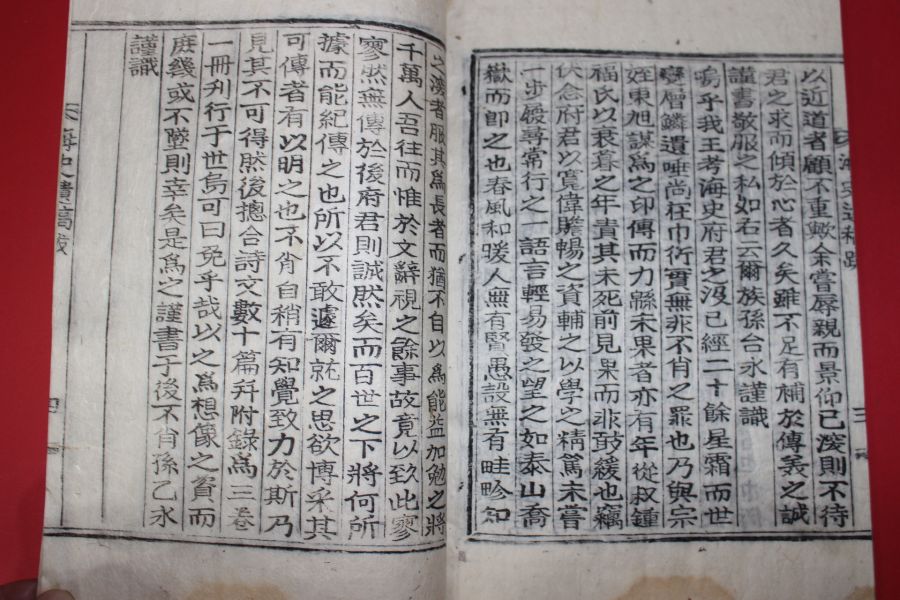 以近道者顧不重歟余嘗辱親而景仰已深則不待
君之求而傾於心者久矣雖不足有補於傳義之誠
謹書敬服之私如右云爾族孫台永謹識
嗚乎我王考海史府君之沒已經二十餘星霜而世
層鱗遺唾尚在巾衍實無非不肖之罪也乃與宗
姪東旭謀爲之印傳而力緜未果者亦有年從叔鐘
福氏以衰耋之年責其未死前見果而非鼓緩也竊
伏念府君以寬偉贍暢之資輔之以學之精篤未嘗
一步履尋常行之一語言輕易發之望之如泰山喬
嶽而卽之也春風和暖人無有賢愚設無有畦畛知
之淺者服其爲長者而猶不自以爲能益加勉之將
千萬人吾往而惟於文辭視之餘事故竟以致此寥
寥然無傳於後府君則誠然矣而百世之下將何所
據而能紀傳之也所以不敢遽爾就之思欲博采其
可傳者有以明之也不肖自稍有知覺致力於斯乃
見其不可得然後摠合詩文數十篇幷附錄爲三卷
一冊刋行于世烏可曰免乎哉以之爲想像之資而
庶幾或不墜則幸矣是爲之謹書于後不肖孫乙永
謹識
海史遺稿跋